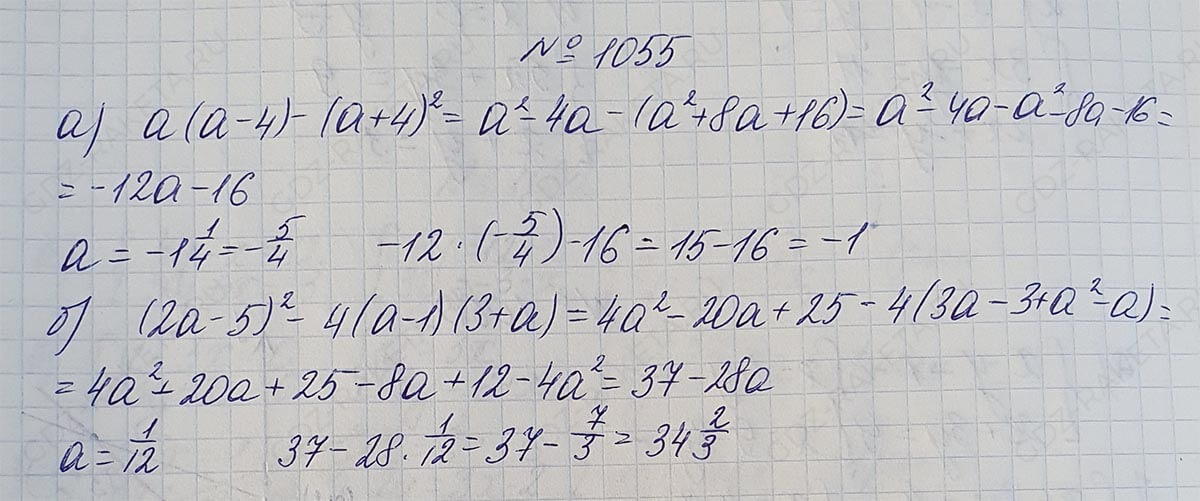 № 1055
а) a(a-4)-(a+4)²= a²-4a-(a²+8a+16)= a²-4a-a²-8a-16=
= -12a-16
a = -1 1/4 = -5/4 -12·(-5/4)-16=15-16=-1
б) (2a-5)²-4(a-1)(3+a)=4a²-20a+25-4(3a-3+a²-a)=
=4a²-20a+25-8a+12-4a²=37-28a
a = 1/12 37-28·1/12=37-7/3=34 2/3